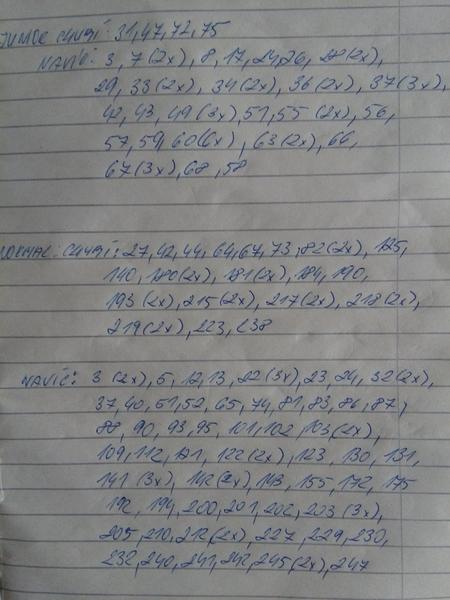 JUNIOR CHYBÍ: 31,47,72,75
NAVÍC: 3, 7(2x), 8, 17, 24,26, 28(2x),
29, 33(2x), 34(2x), 36(2x), 37(3x),
42, 43, 49(3x), 51, 55(2x), 56,
57, 59, 60(6x), 63(2x), 66,
67(3x), 68, 58
NORMAL: CHYBÍ: 27,42,44,64,67,73,82(2x), 125,
140, 180(2x), 181(2x), 184, 190,
193(2x), 215(2x), 217(2x), 218(2x),
219(2x), 223, 238
NAVÍC: 3(2x), 5, 12,13, 22(3x), 23, 24, 32(2x),
37,40,51,52, 65, 74, 81, 83, 86, 87,
88, 90, 93, 95, 101, 102, 103(2x),
109, 112, 121, 122(2x), 123, 130, 131,
141(3x), 142(2x), 143, 155, 172, 175
192, 194, 200, 201, 202, 203(3x),
205, 210, 212(2x), 227, 229, 230,
232, 240, 241, 242, 245(2x), 247